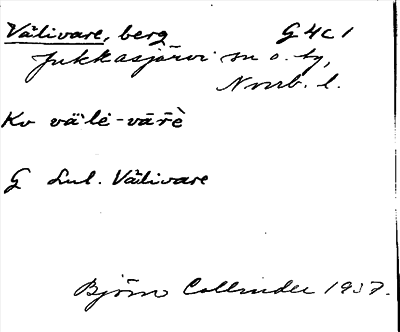 Välivare, berg G 4c 1
Jukkasjärvi sn o. tg,
Norrb. l.
Kv väli-vārè
G Lul. Välivare
Björn Collinder 1937.